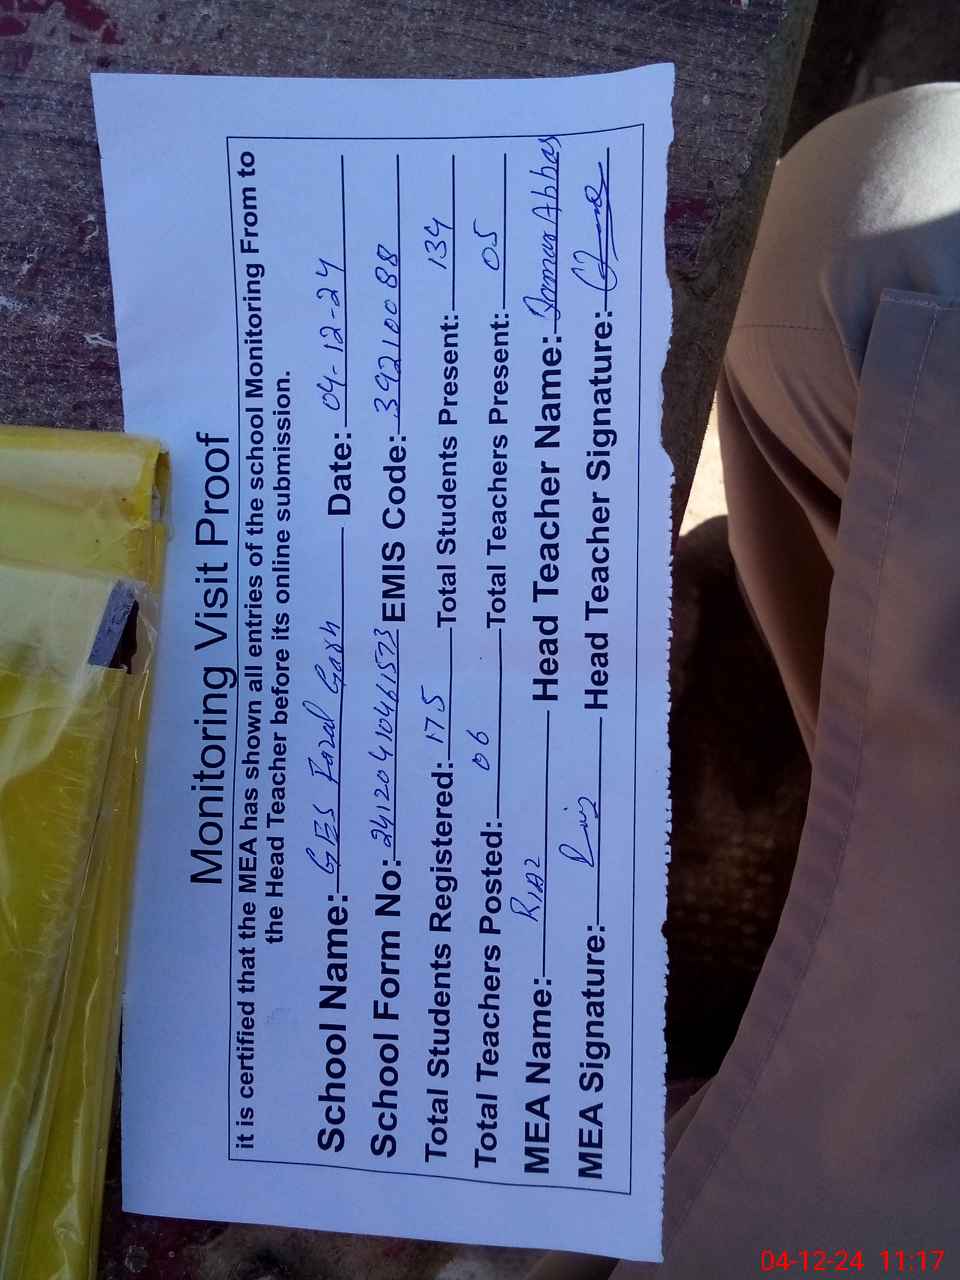 Monitoring Visit Proof
it is certified that the MEA has shown all entries of the school Monitoring From to
the Head Teacher before its online submission.
School Name: GES Fazal Garh Date: 04-12-24
School Form No: 241204104461573 EMIS Code: 39210088
Total Students Registered: 175 Total Students Present: 134
Total Teachers Posted: 06 Total Teachers Present: 05
MEA Name: RIAZ Head Teacher Name: Abbas
MEA Signature: Riaz Head Teacher Signature:
04-12-24 11:17